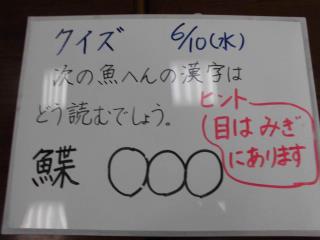 クイズ 6/10(水)
次の魚へんの漢字は
どう読むでしょう。
鰈 ○○○
ヒント
目はみぎ
にあります